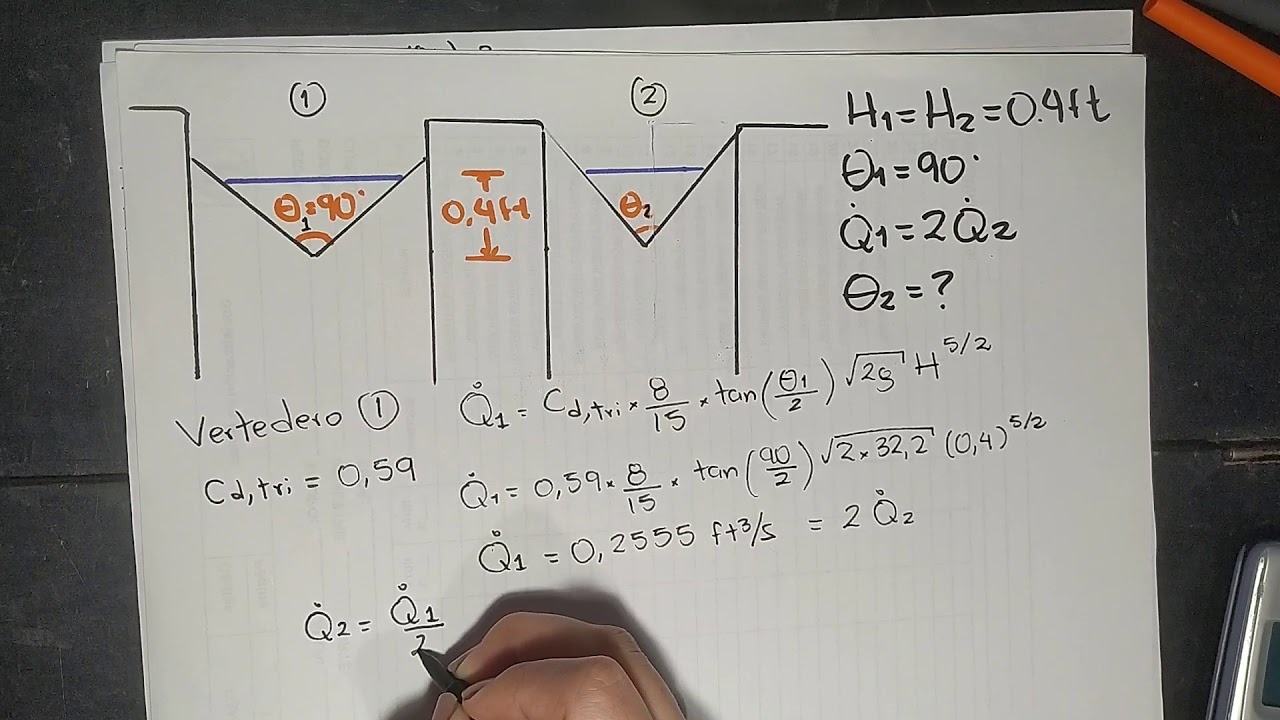 ① ②
H₁=H₂=0.4ft
θ₁=90°
Q̇₁=2Q̇₂
θ₂=?
θ₁=90°
0,4ft
θ₂
Vertedero ①
Q̇₁ = Cd,tri × 8/15 × tan(θ₁/2) √2g H^5/2
Cd,tri = 0,59
Q̇₁ = 0,59 × 8/15 × tan(90/2) √2×32,2 (0,4)^5/2
Q̇₁ = 0,2555 ft³/s = 2 Q̇₂
Q̇₂ = Q̇₁/2